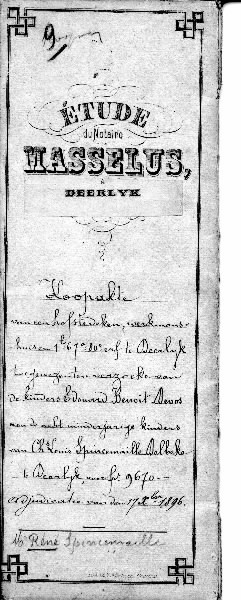 9
ÉTUDE
du Notaire
MASSELUS,
à
DEERLYK
Koopakte
van een hofstedeken, werkmans-
huis en 1h 67a 80c erf te Deerlyk
ten verzoeke van
de kinders Edouard Benoit Devos
aan de acht minderjarige kinders
van Ch Louis Spincemaille Dalbeke
te Deerlyk voor fr 9670 -
adjudicatie van den 17 Xber 1896.
Mr René Spincemaille